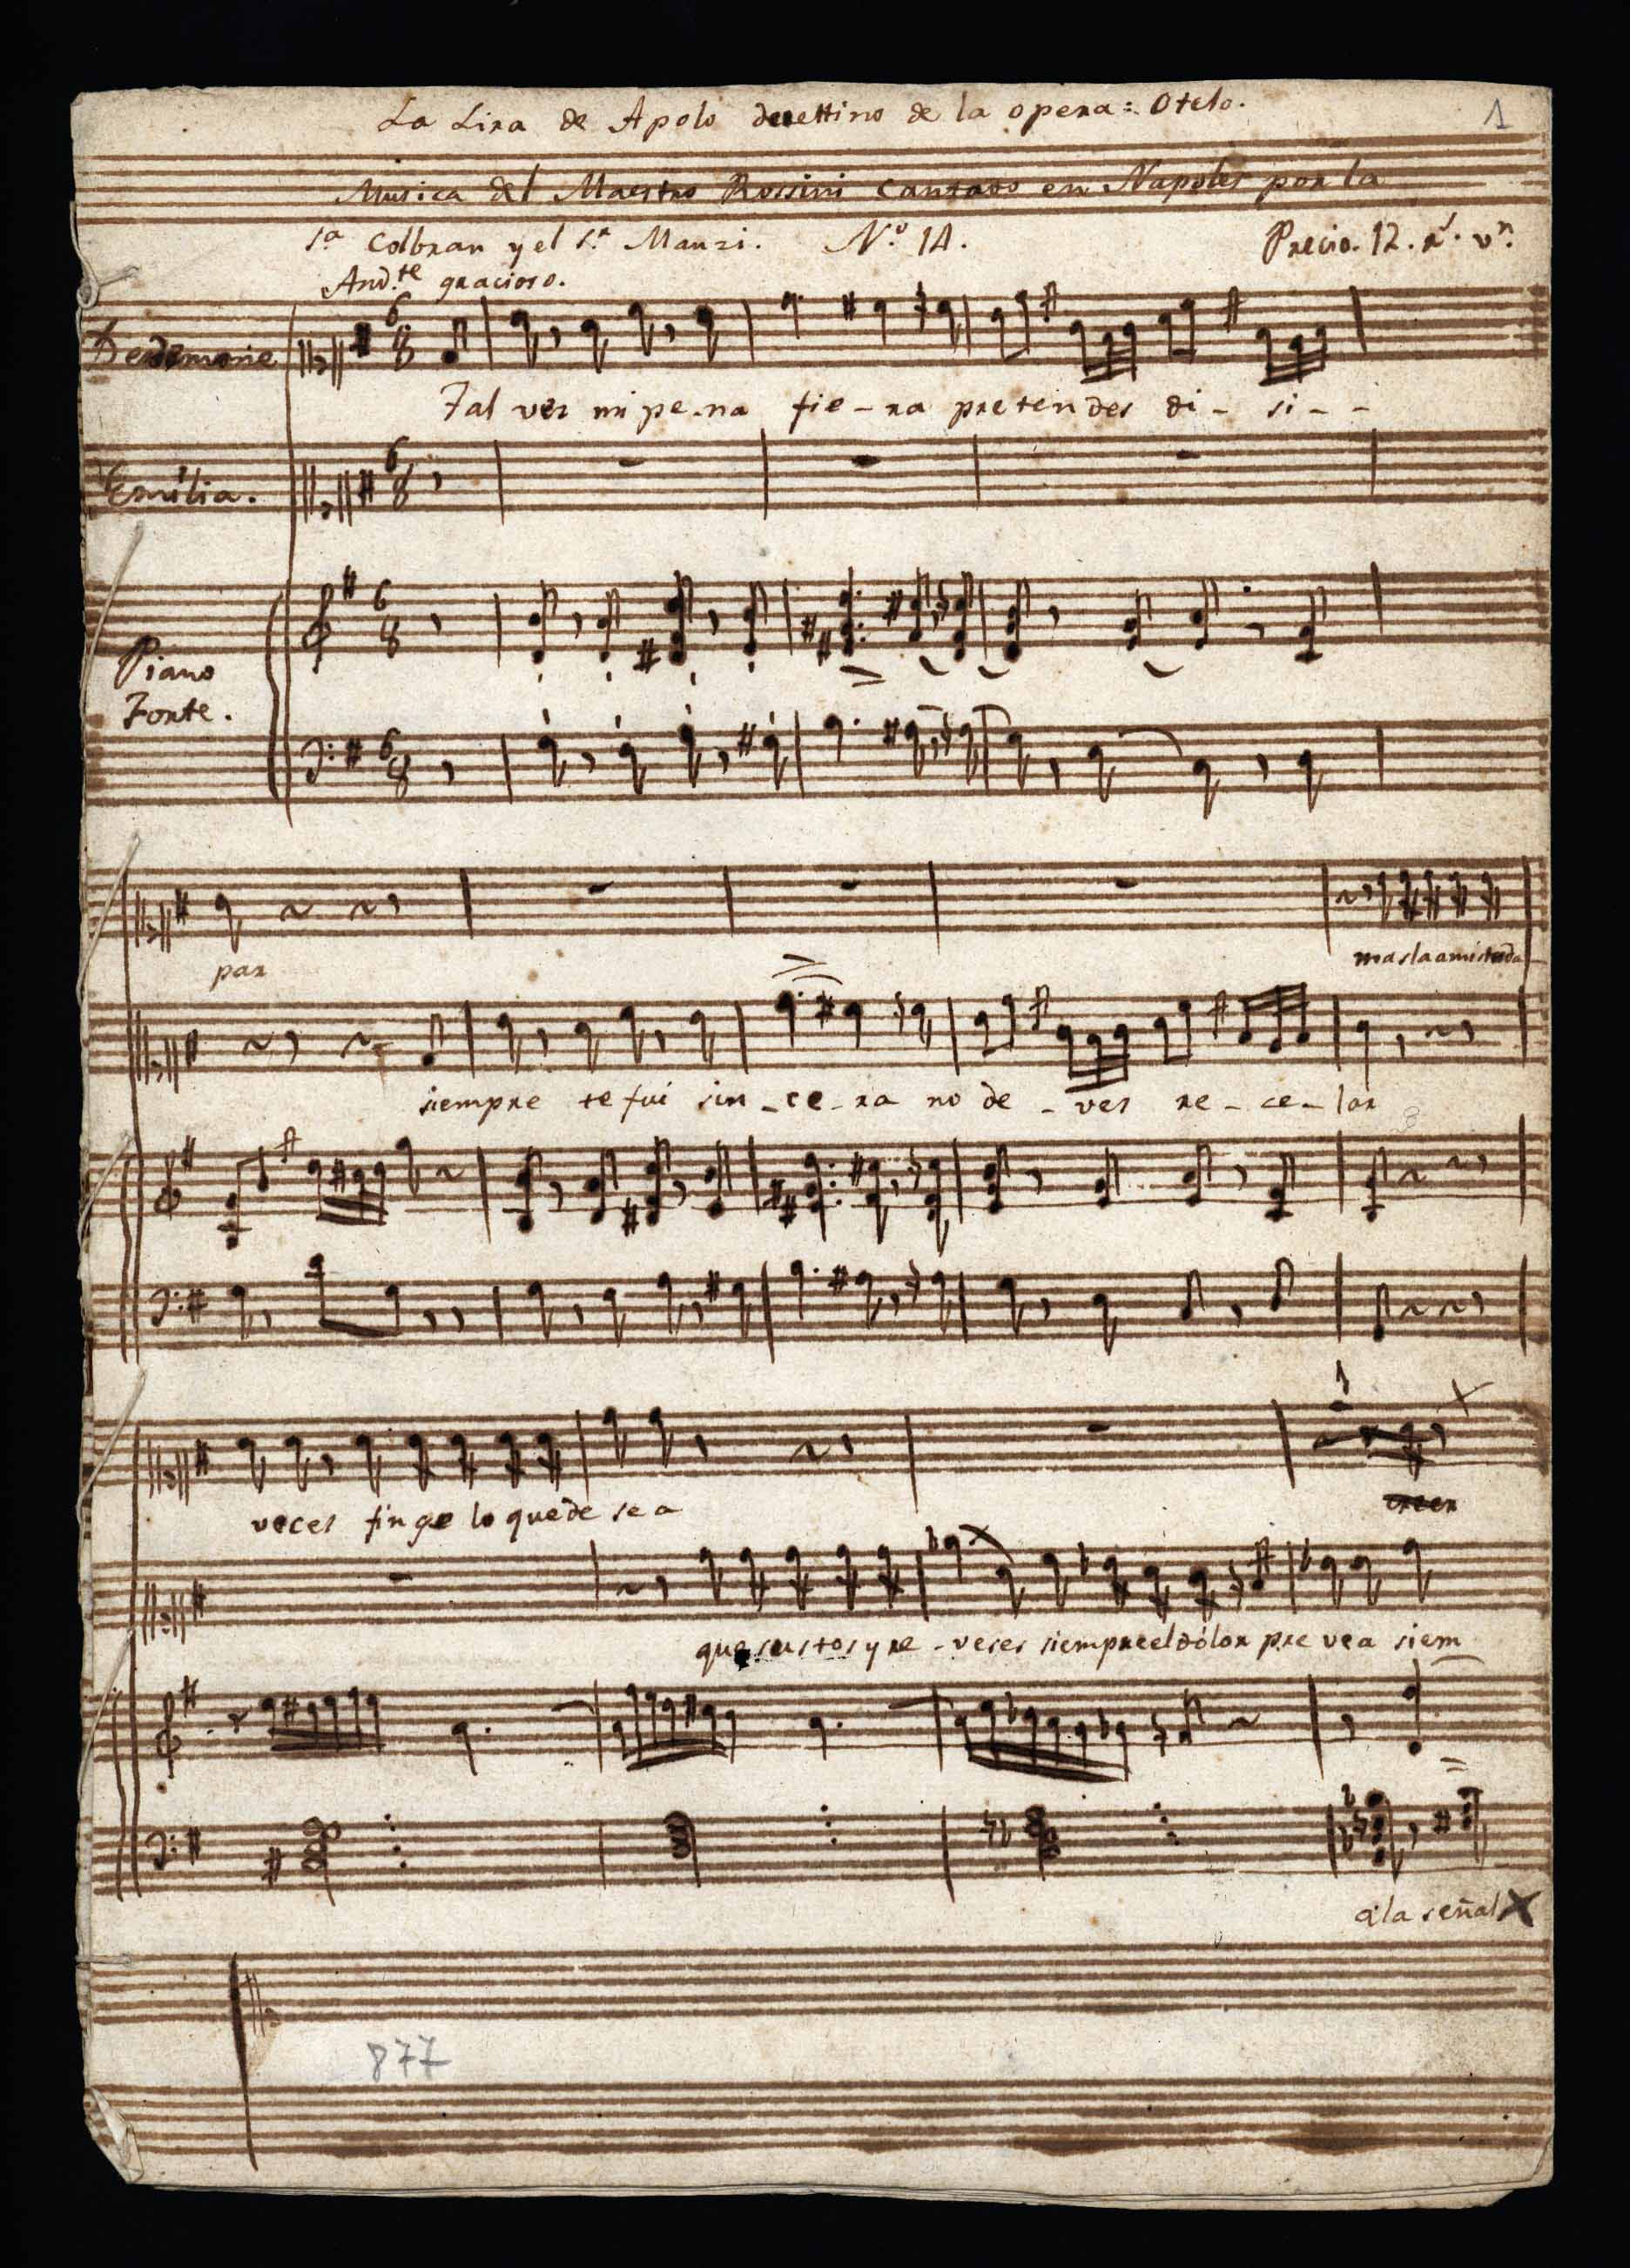 La Lira de Apolo duettino de la opera = Otelo.
1
Musica del Maestro Rossini Cantado en Napoles por la
S.ª Colbran y el S.r Manzi. N.º 14. Precio. 12. r.s v.n
And.te gracioso.
Desdemone
6 8
Tal vez mi pe-na fie-ra pretendes di-si--
Emilia.
6 8
Piano
Forte.
6 8
6 8
par
mas la amistad a
siempre te fui sin-ce-ra no de-ves re-ce-lar
1
X
veces finge lo que desea
creer
que sustos y re-veses siempre el dolor prevea siem
a la señal X
877